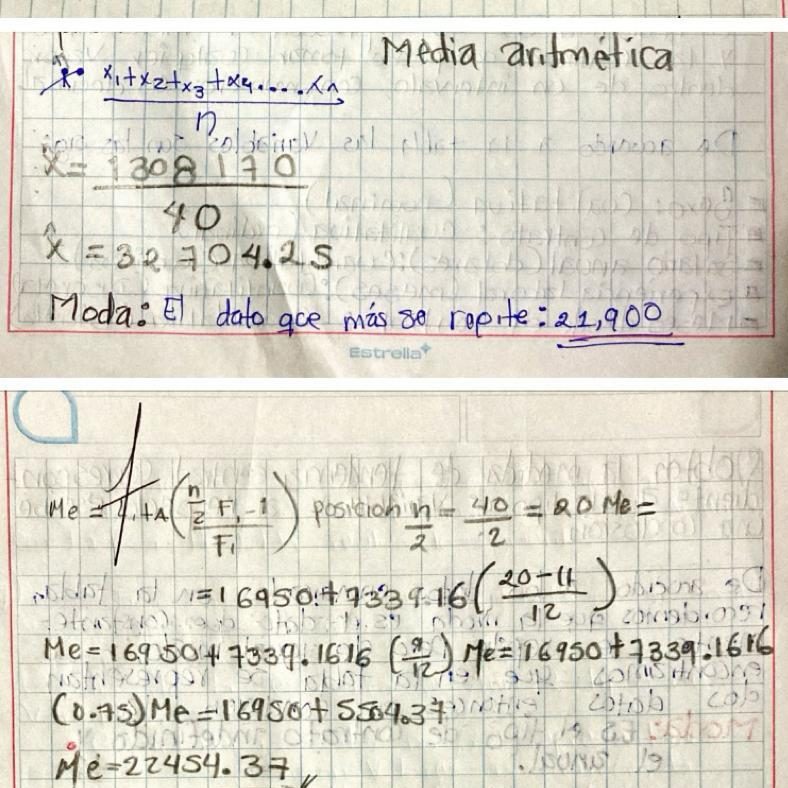 Media aritmética
x₁+x₂+x₃+x₄.....xₙ
n
x̂ = 1308170
40
x̂ = 32704.25
Moda: El dato que más se repite: 21,900
Estrella
Me = Li+A (n/2 Fi-1 / Fi) posición n/2 = 40/2 = 20 Me =
= 16950+7339.16 (20-11 / 12)
Me = 16950+7339.1616 (9/12) Me = 16950+7339.1616
(0.75) Me = 16950+5504.37
Me = 22454.37